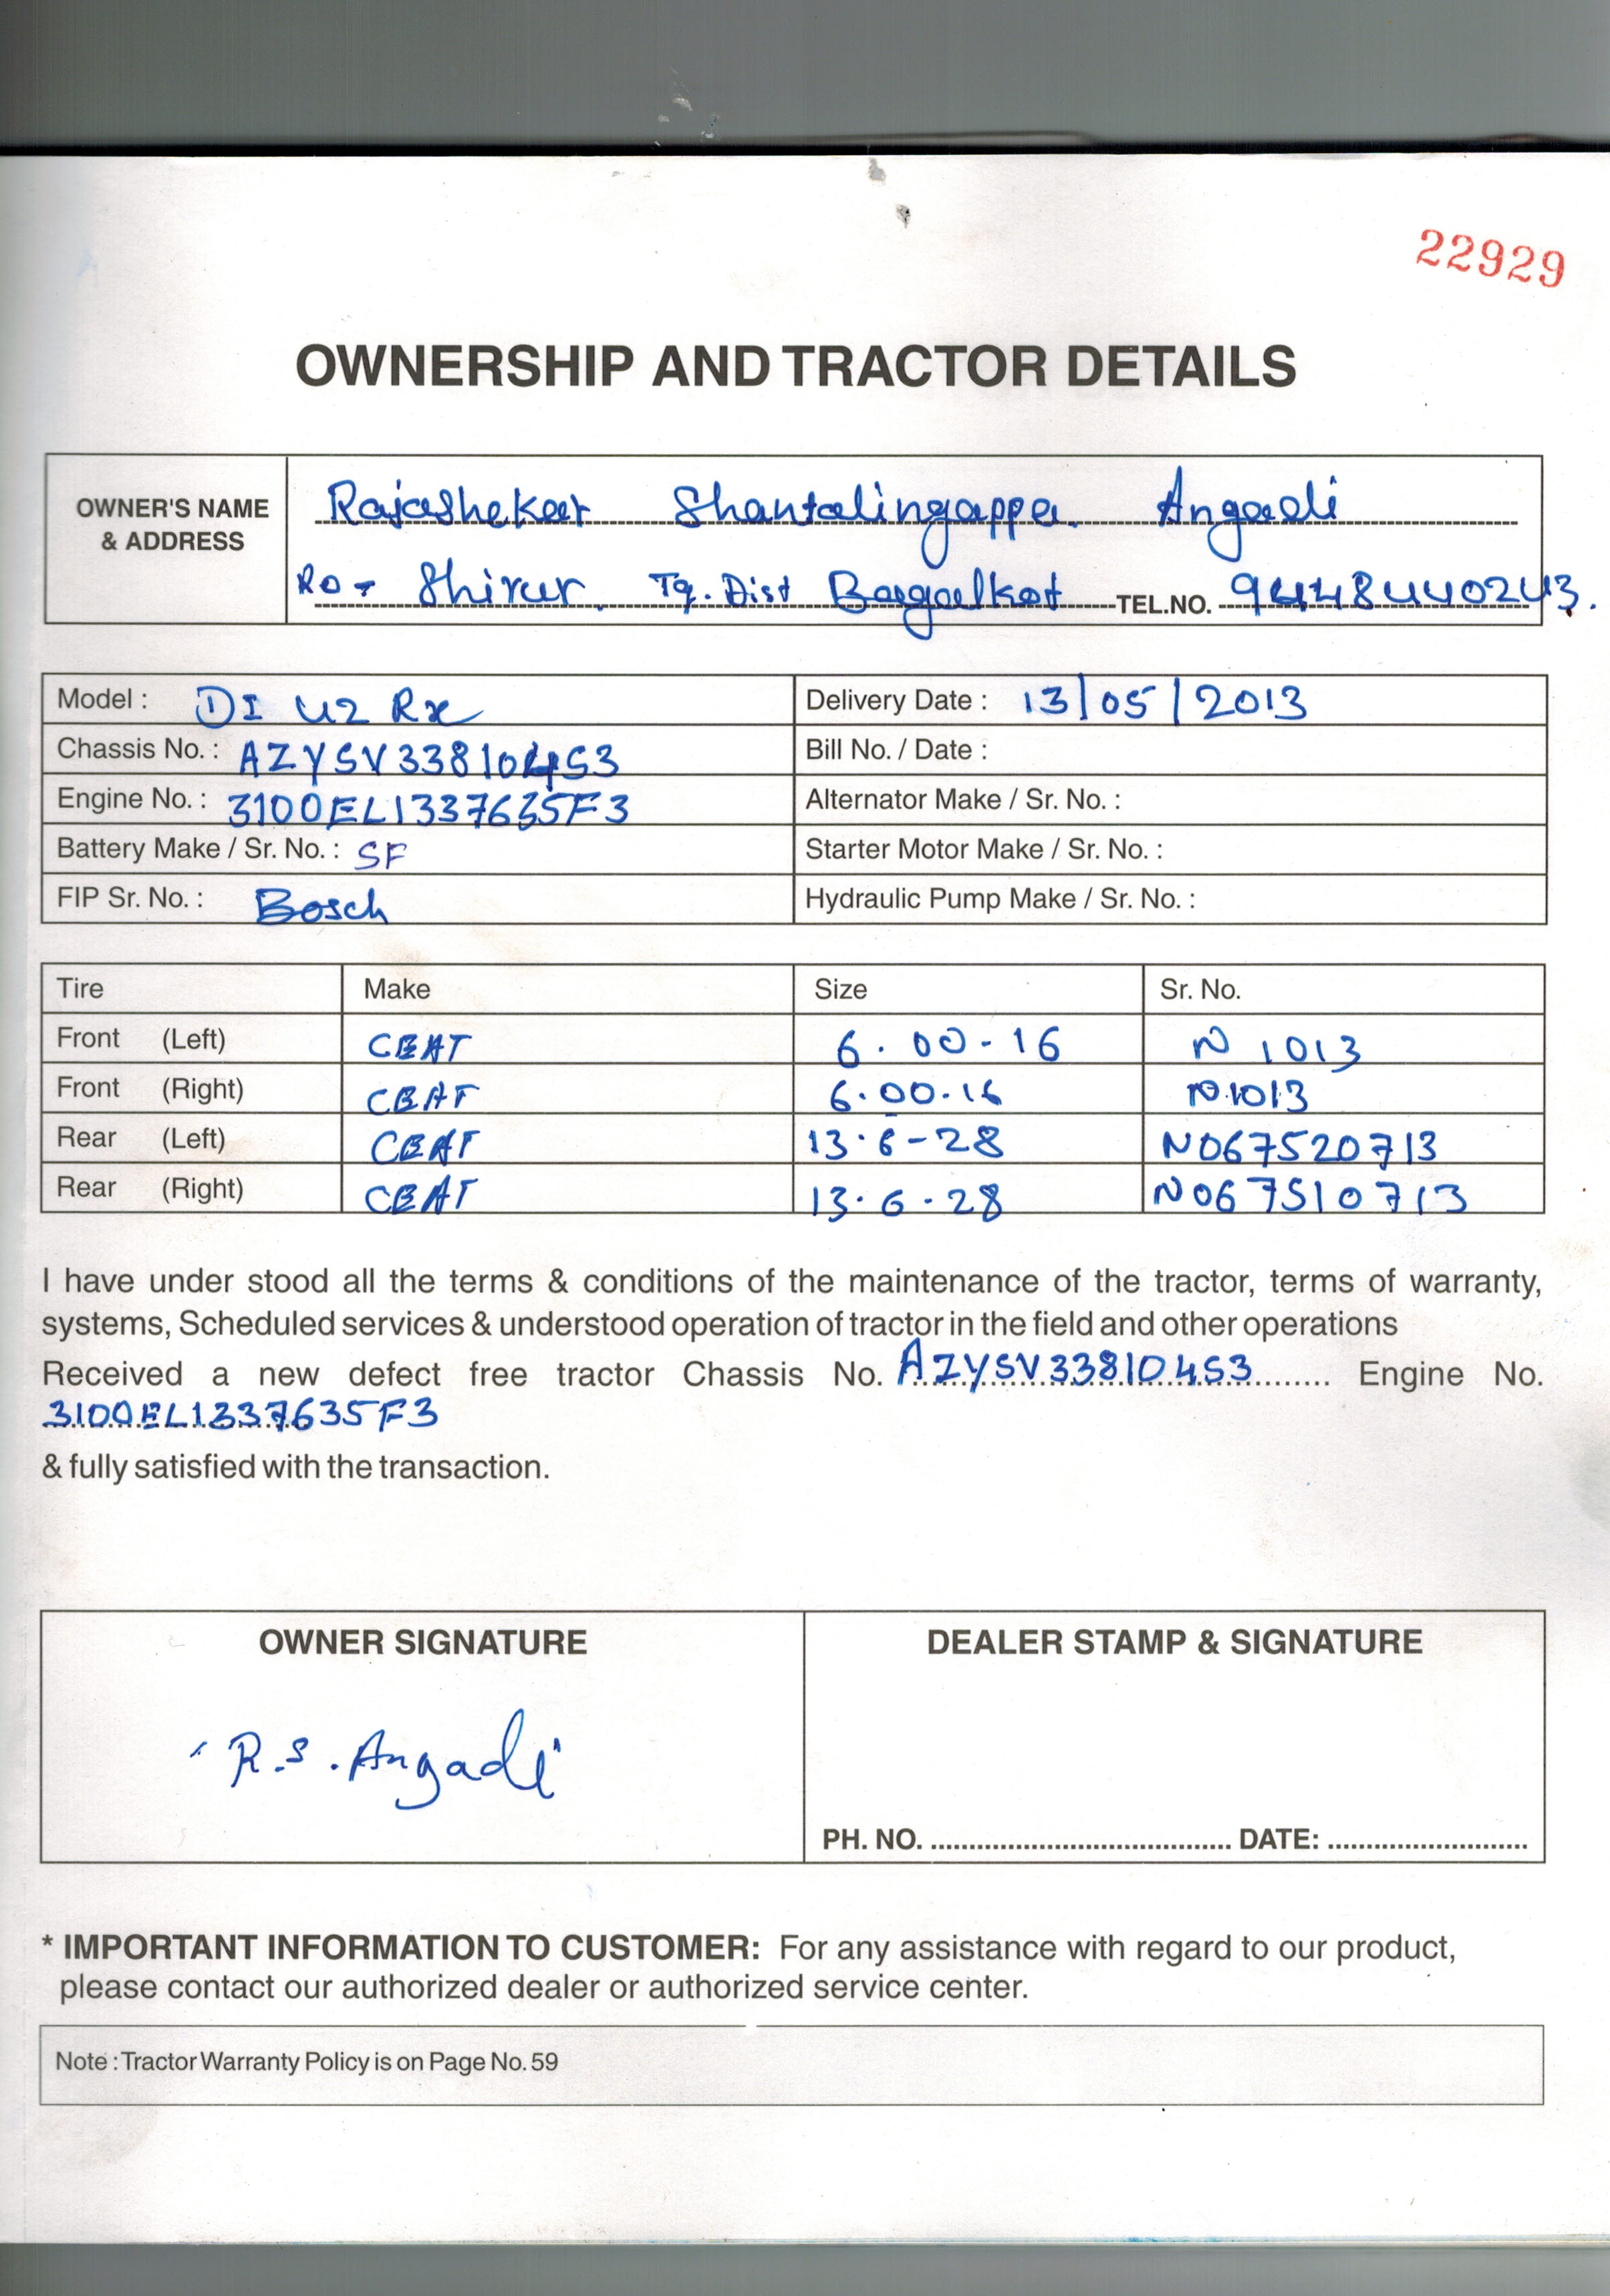 22929
OWNERSHIP AND TRACTOR DETAILS
OWNER'S NAME & ADDRESS
Rajashekar Shantalingappa. Angadi
Ro - Shirur. Tq. Dist Bagalkot TEL.NO. 9448440243.
Model : DI 42 Rx Delivery Date : 13/05/2013
Chassis No. : AZYSV338104S3 Bill No. / Date :
Engine No. : 3100EL1337635F3 Alternator Make / Sr. No. :
Battery Make / Sr. No. : SF Starter Motor Make / Sr. No. :
FIP Sr. No. : Bosch Hydraulic Pump Make / Sr. No. :
Tire Make Size Sr. No.
Front (Left) CEAT 6.00-16 N 1013
Front (Right) CEAT 6.00.16 N.1013
Rear (Left) CEAT 13.6-28 N067520713
Rear (Right) CEAT 13.6.28 N067510713
I have under stood all the terms & conditions of the maintenance of the tractor, terms of warranty,
systems, Scheduled services & understood operation of tractor in the field and other operations
Received a new defect free tractor Chassis No. AZYSV338104S3 Engine No.
3100EL1337635F3
& fully satisfied with the transaction.
OWNER SIGNATURE DEALER STAMP & SIGNATURE
R.S. Angadi
PH. NO. DATE:
* IMPORTANT INFORMATION TO CUSTOMER: For any assistance with regard to our product,
please contact our authorized dealer or authorized service center.
Note : Tractor Warranty Policy is on Page No. 59